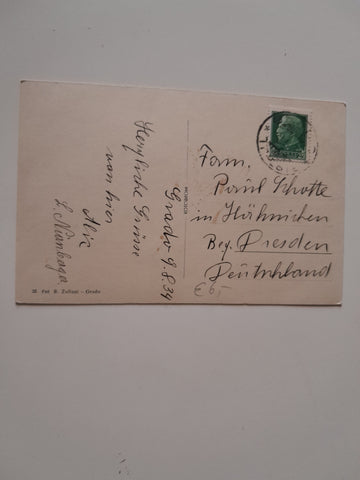 Grado 9.8.39
Herzliche Grüsse
von hier
Alic
Fam.
Paul Schotte
in Hähnichen
Bez. Dresden
Deutschland
€ 6,-
38 Fot B. Zuliani - Grado